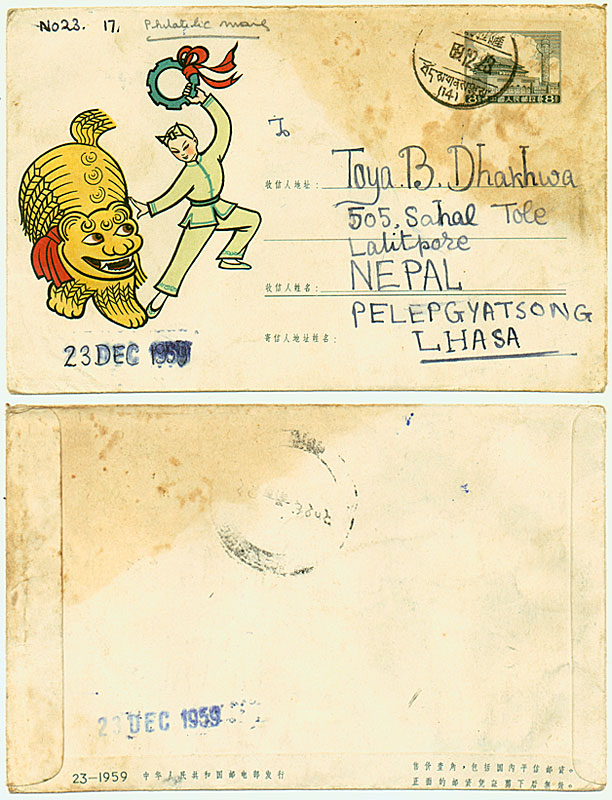 No 23. 17. Philatelic mail
59.12.23
(14)
8 中國人民郵政 8
To
收信人地址： Toya. B. Dhakhwa
505, Sahal Tole
Lalitpore
收信人姓名： NEPAL
PELEPGYATSONG
寄信人地址姓名： LHASA
23 DEC 1959
23 DEC 1959
23—1959 中华人民共和国邮电部发行
售价壹角，包括国内平信邮资。
正面的邮资凭证剪下后无效。